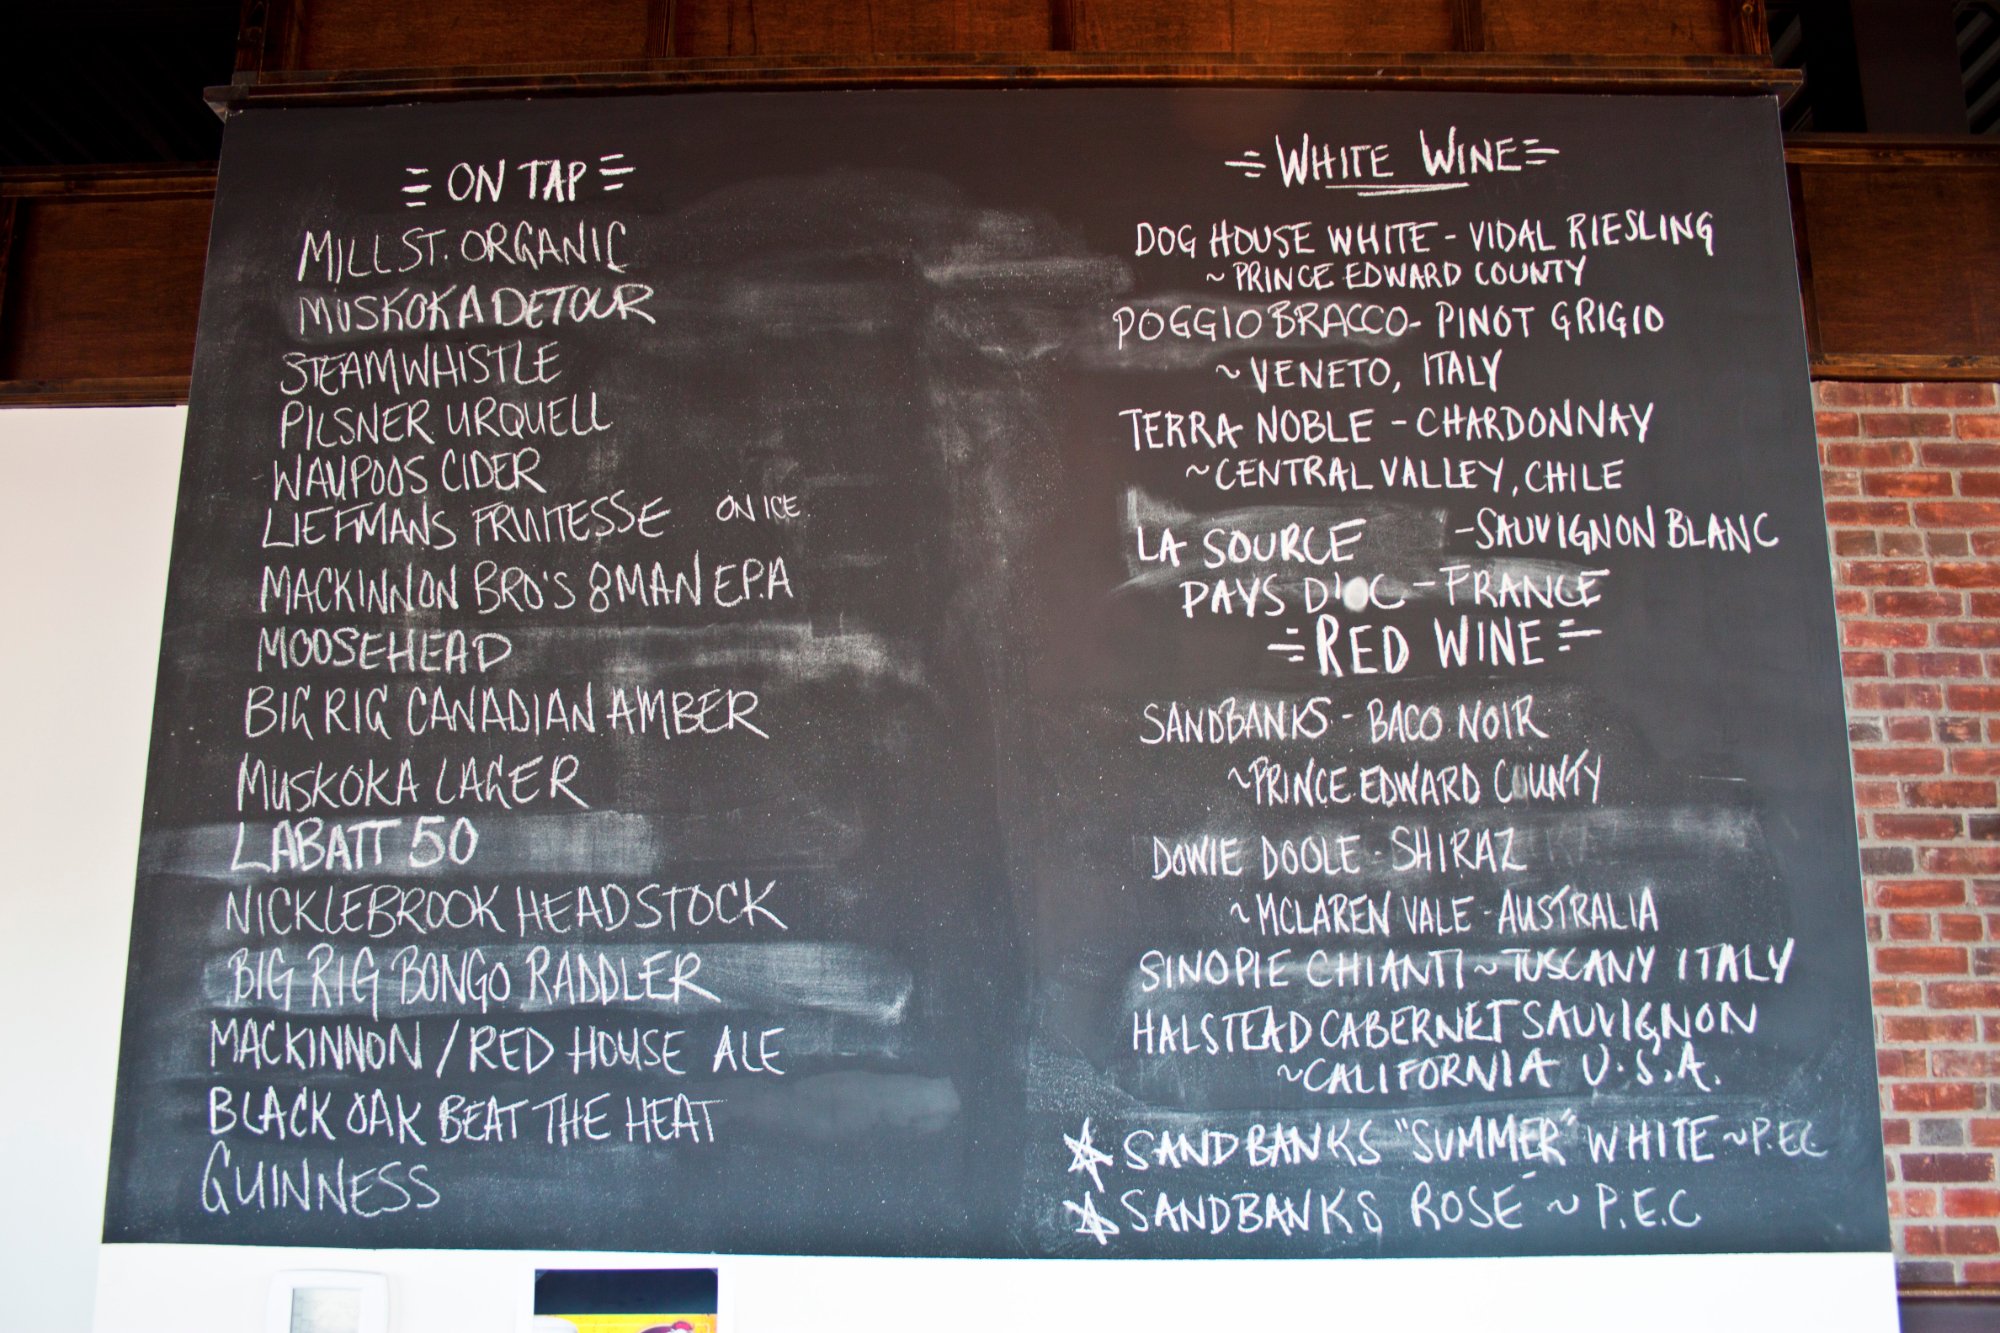 ON TAP
MILL ST. ORGANIC
MUSKOKA DETOUR
STEAMWHISTLE
PILSNER URQUELL
WAUPOOS CIDER
LIEFMANS FRUITESSE ON ICE
MACKINNON BRO'S 8 MAN E.P.A
MOOSEHEAD
BIG RIG CANADIAN AMBER
MUSKOKA LAGER
LABATT 50
NICKLEBROOK HEADSTOCK
BIG RIG BONGO RADDLER
MACKINNON / RED HOUSE ALE
BLACK OAK BEAT THE HEAT
GUINNESS
WHITE WINE
DOG HOUSE WHITE - VIDAL RIESLING
~ PRINCE EDWARD COUNTY
POGGIO BRACCO - PINOT GRIGIO
~ VENETO, ITALY
TERRA NOBLE - CHARDONNAY
~ CENTRAL VALLEY, CHILE
LA SOURCE - SAUVIGNON BLANC
PAYS D'OC - FRANCE
RED WINE
SANDBANKS - BACO NOIR
~ PRINCE EDWARD COUNTY
DOWIE DOOLE - SHIRAZ
~ MCLAREN VALE - AUSTRALIA
SINOPIE CHIANTI ~ TUSCANY ITALY
HALSTEAD CABERNET SAUVIGNON
~ CALIFORNIA U.S.A.
☆ SANDBANKS "SUMMER" WHITE ~ P.E.C
☆ SANDBANKS ROSÉ ~ P.E.C